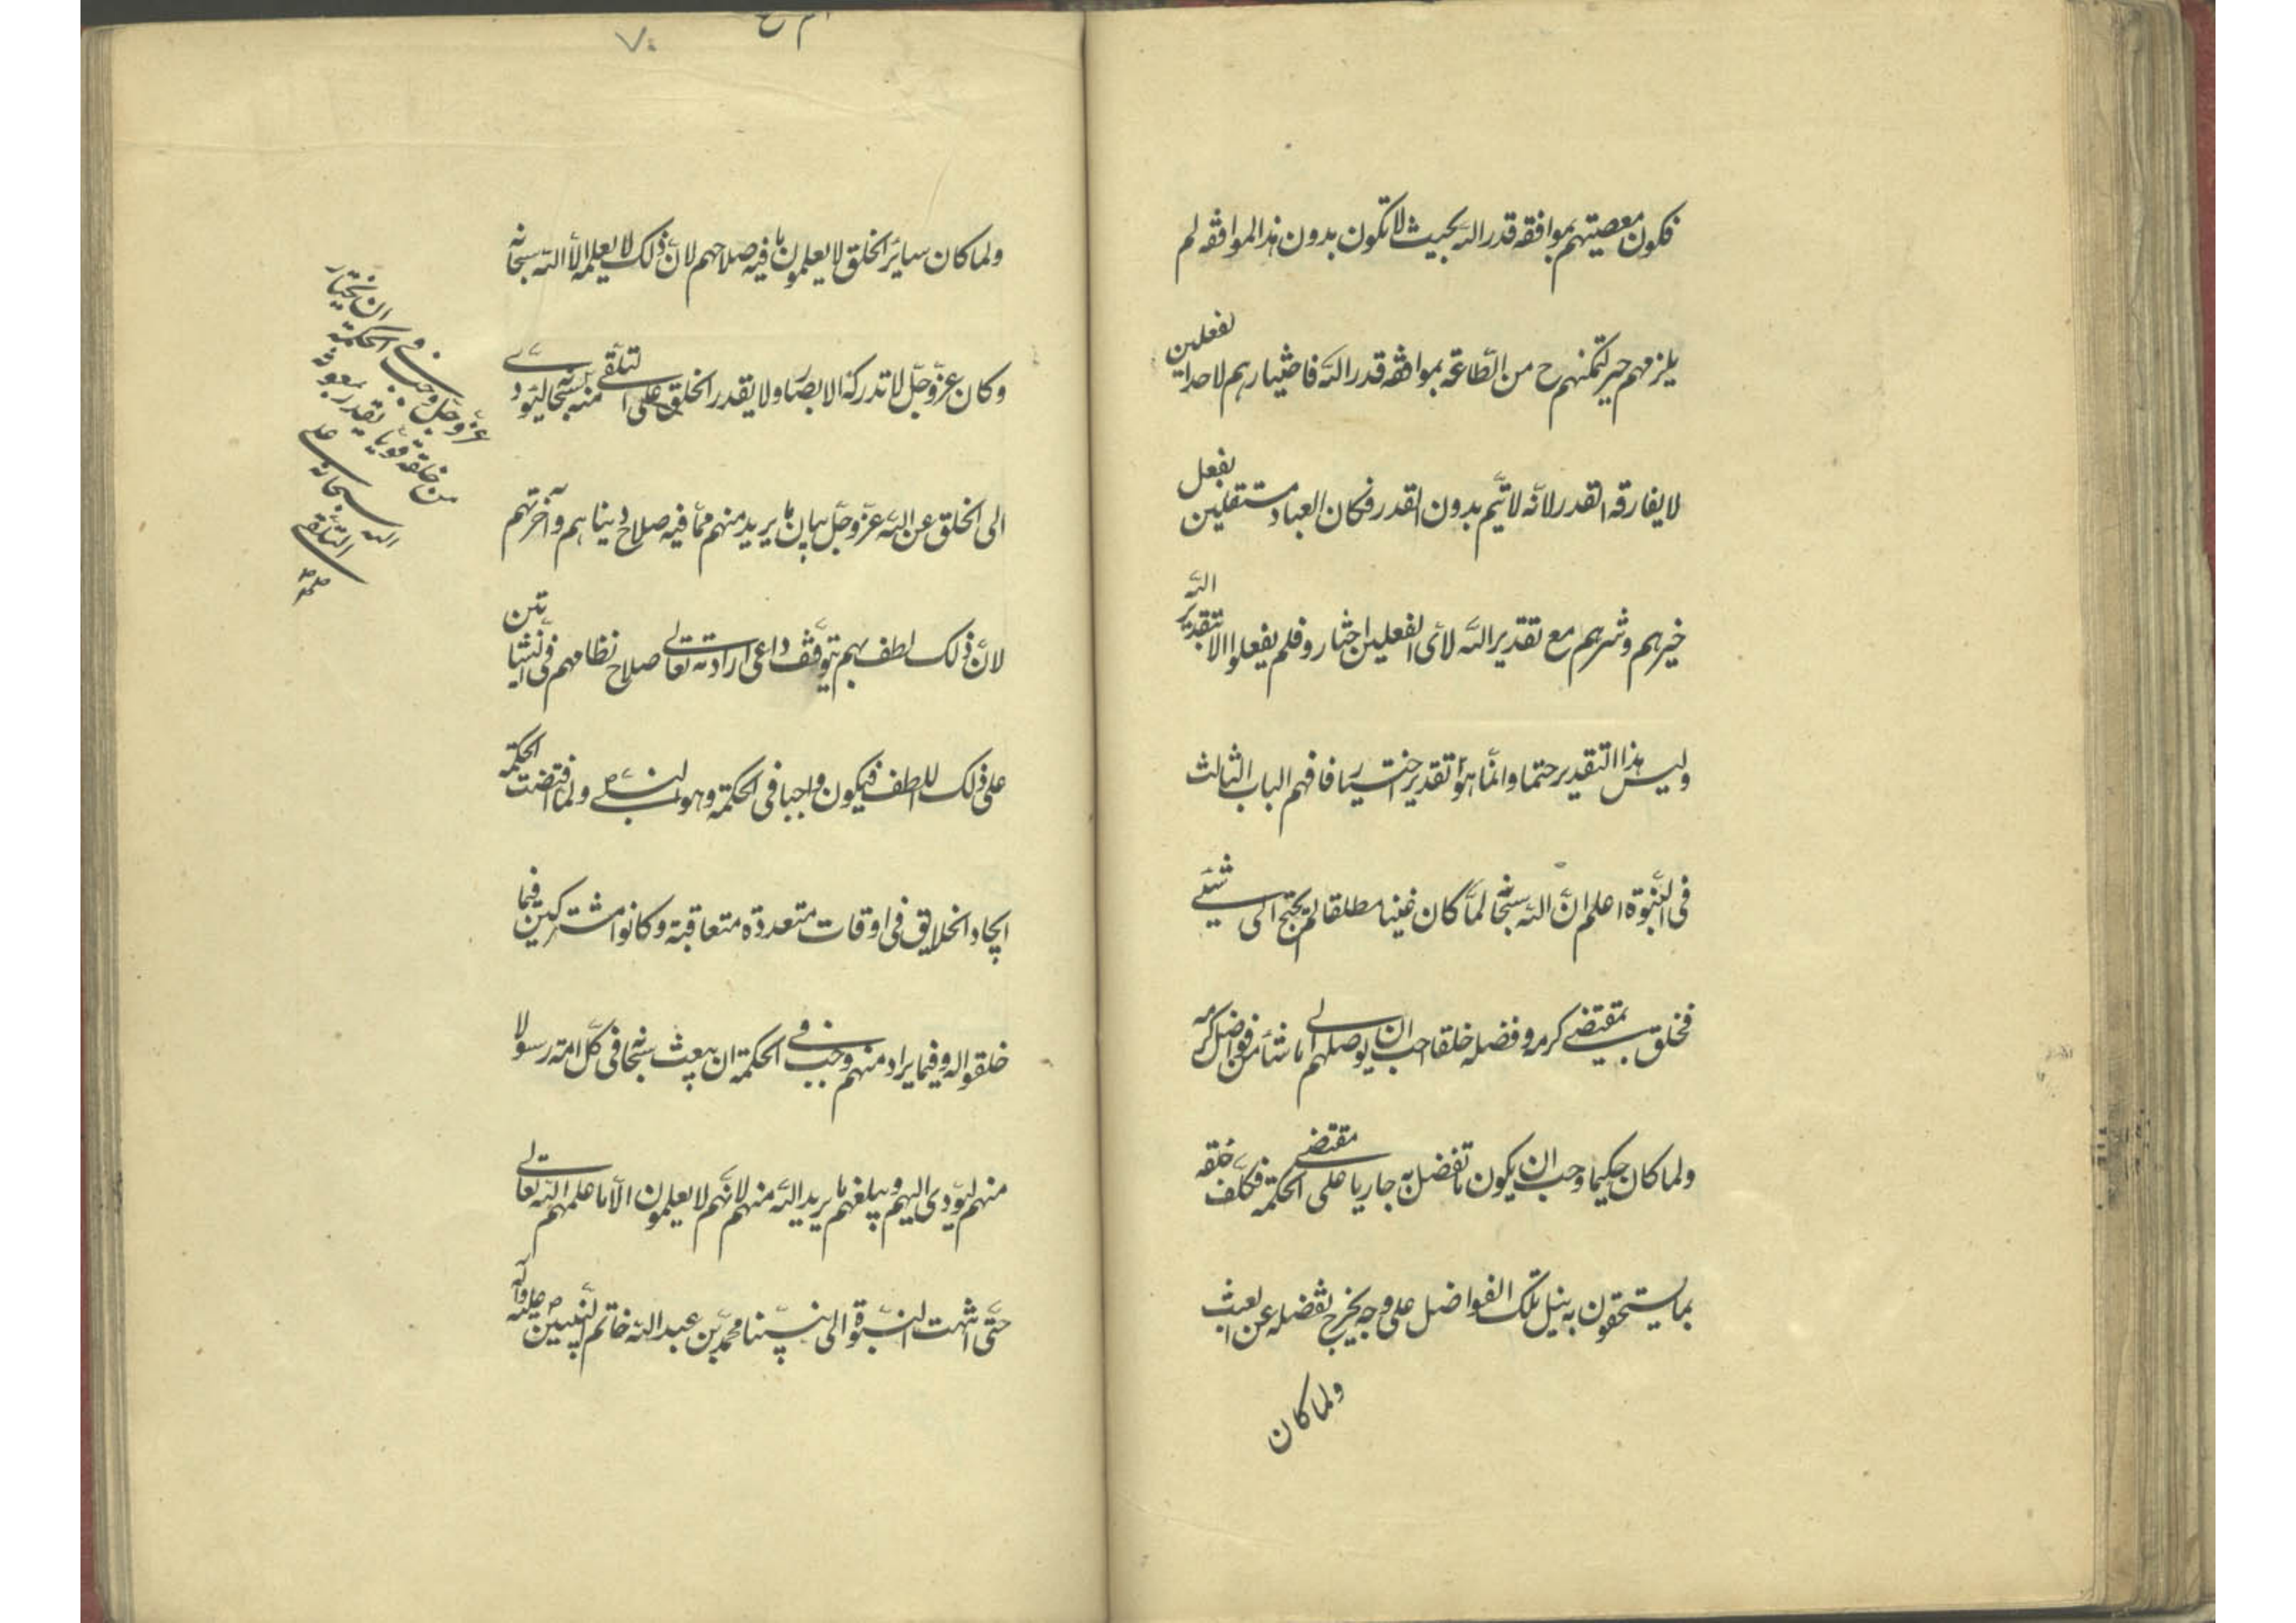 فكون معصيتهم بموافقة قدر الله بحيث لا تكون بدون هذا الموافقة لم
يلزمهم جبر لتمكنهم ح من الطاعة بموافقة قدر الله فاختيارهم لاحد الفعلين
لا يفارقه القدر لانه لا تتم بدون القدر فكان العباد مستقلين بفعل
خيرهم وشرهم مع تقدير الله لاى الفعلين اختاروا فلم يفعلوا الا بتقدير الله
وليس هذا التقدير حتما وانما هو تقدير اختيار فافهم الباب الثالث
فى النبوة اعلم ان الله سبحانه لما كان غنيا مطلقا لم يحتج الى شيئ
فخلق بمقتضى كرمه وفضله خلقا احب ان يوصلهم الى ما شاء من فواضل كرمه
ولما كان حكيما وجب ان يكون ما تفضل به جاريا على مقتضى الحكمة فكلف خلقه
بما يستحقون به نيل تلك الفواضل على وجه يخرج بفضله عن العبث
ولما كان
٧٠
ولما كان ساير الخلق لا يعلمون ما فيه صلاحهم لان ذلك لا يعلمه الا الله سبحانه
وكان عز وجل لا تدركه الابصار ولا يقدر الخلق على التلقى منه سبحانه ليؤدى
الى الخلق عن الله عز وجل بيان ما يريد منهم مما فيه صلاح دنياهم وآخرتهم
لان ذلك لطف بهم يتوقف داعى ارادته تعالى صلاح نظامهم فى النشأتين
على ذلك اللطف فيكون واجبا فى الحكمة وهو النبى ص ولما اقتضت الحكمة
ايجاد الخلايق فى اوقات متعددة متعاقبة وكانوا مشتركين فيما
خلقوا له وفيما يراد منهم وجب فى الحكمة ان يبعث سبحانه فى كل امة رسولا
منهم ليؤدى اليهم ويبلغهم ما يريد الله منهم لانهم لا يعلمون الا ما علمهم الله تعالى
حتى انتهت النبوة الى نبينا محمد بن عبد الله خاتم النبيين ص عليه وآله
عز وجل وجب فى الحكمة ان يختار
من خلقه قويا يقدر بمعونة
الله سبحانه على
التلقى